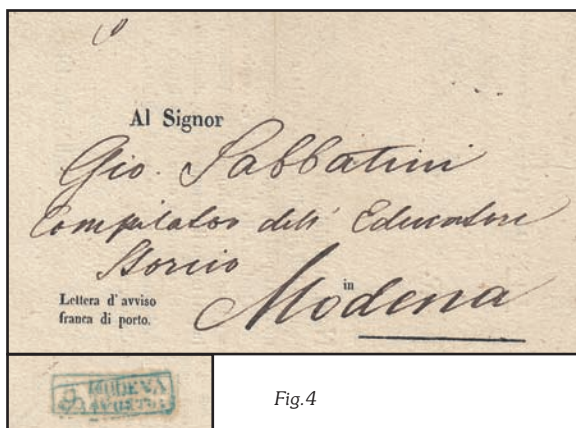 Al Signor
Gio. Sabbatini
Compilator dell' Educatore
Storico
in
Modena
Lettera d'avviso
franca di porto.
9 MODENA
AGOSTO
Fig.4